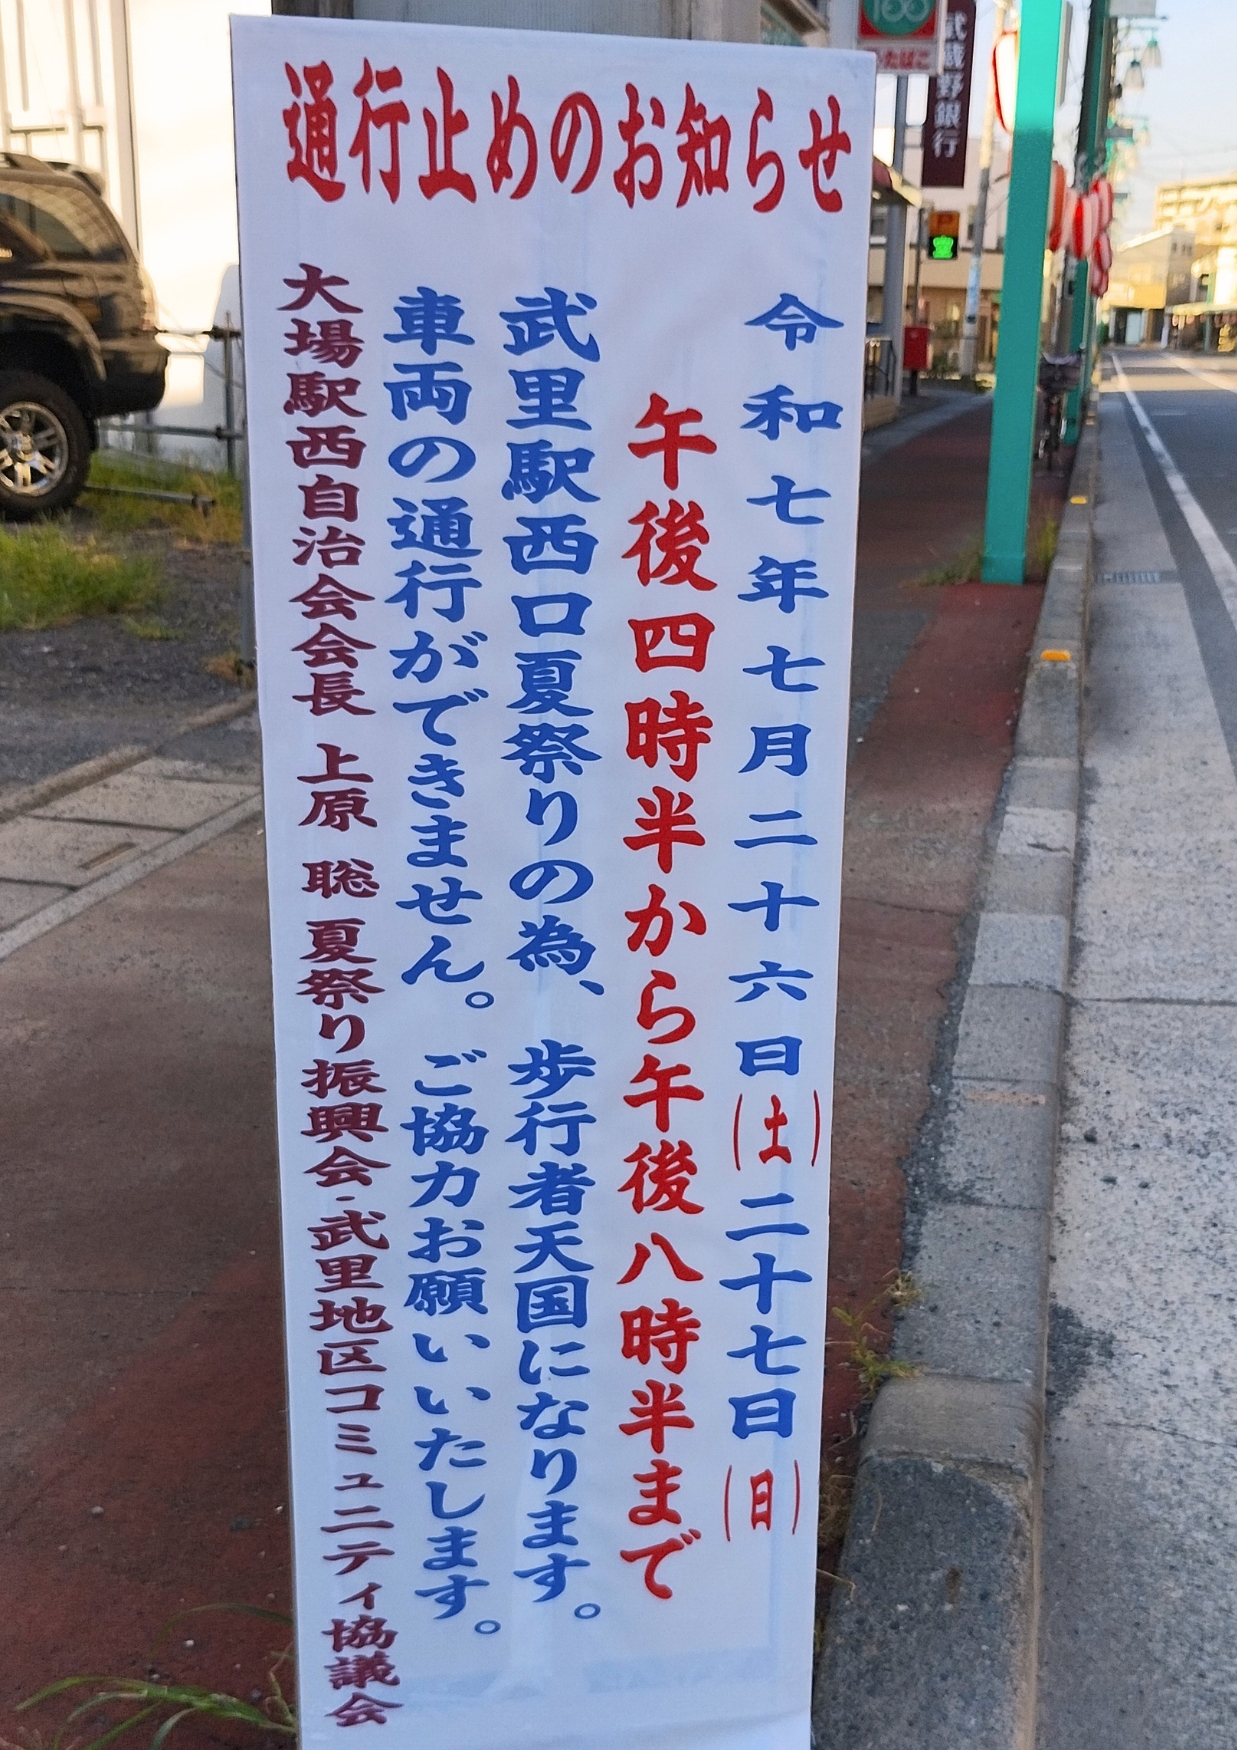 通行止めのお知らせ
令和七年七月二十六日(土)二十七日(日)
午後四時半から午後八時半まで
武里駅西口夏祭りの為、歩行者天国になります。
車両の通行ができません。ご協力お願いいたします。
大場駅西自治会会長 上原 聡 夏祭り振興会・武里地区コミュニティ協議会
武蔵野銀行
たばこ